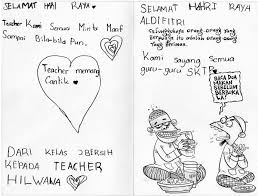 SELAMAT HARI RAYA
Teacher Kami Semua Minta Maaf
Sampai Bila-bila Pun.
Teacher memang
Cantik
DARI KELAS 2 BERSIH
KEPADA TEACHER
HILWANA
SELAMAT HARI RAYA
ALDIFITRI
orang orang yang
berpuasa itu adalah orang orang
yang Beriman.
Kami Sayang Semua
guru-guru SKTP
BACA DOA
MAKAN
SEBELUM
BERBUKA
LA!